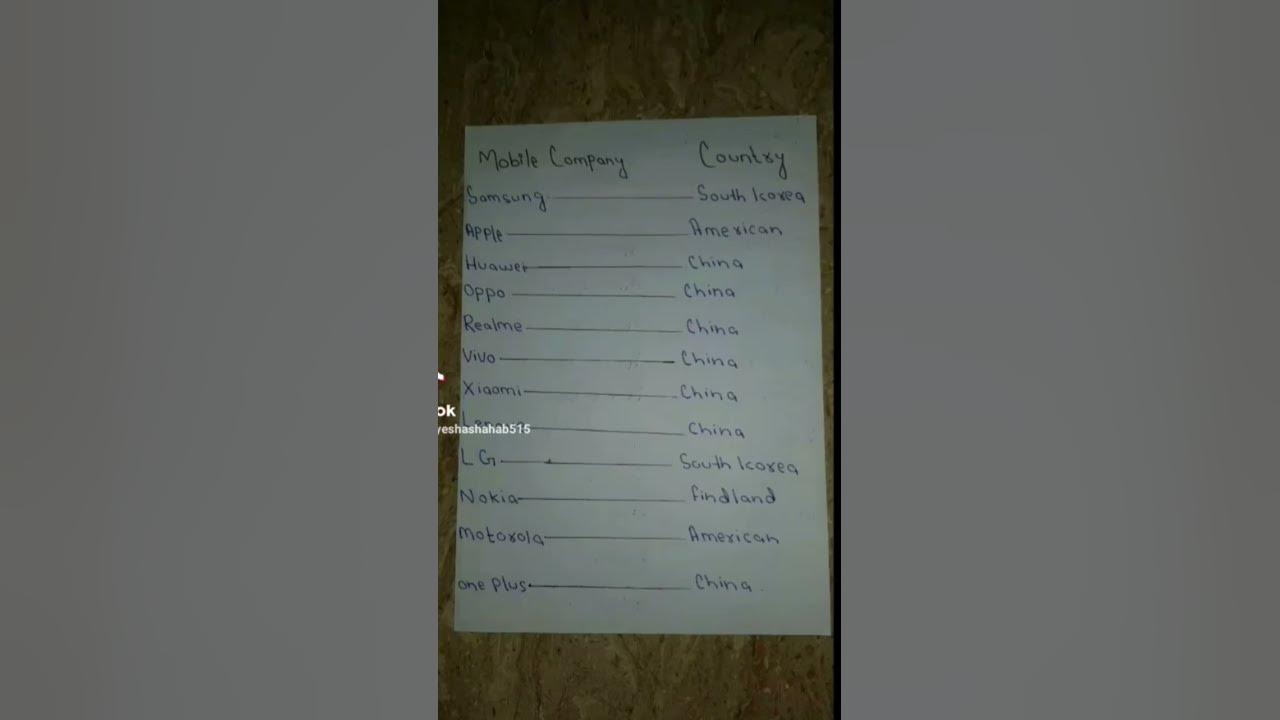 Mobile Company Country
Samsung South Korea
Apple American
Huawei China
Oppo China
Realme China
Vivo China
Xiaomi China
Lenovo China
ok
yeshashahab515
LG South Korea
Nokia findland
Motorola American
one Plus China